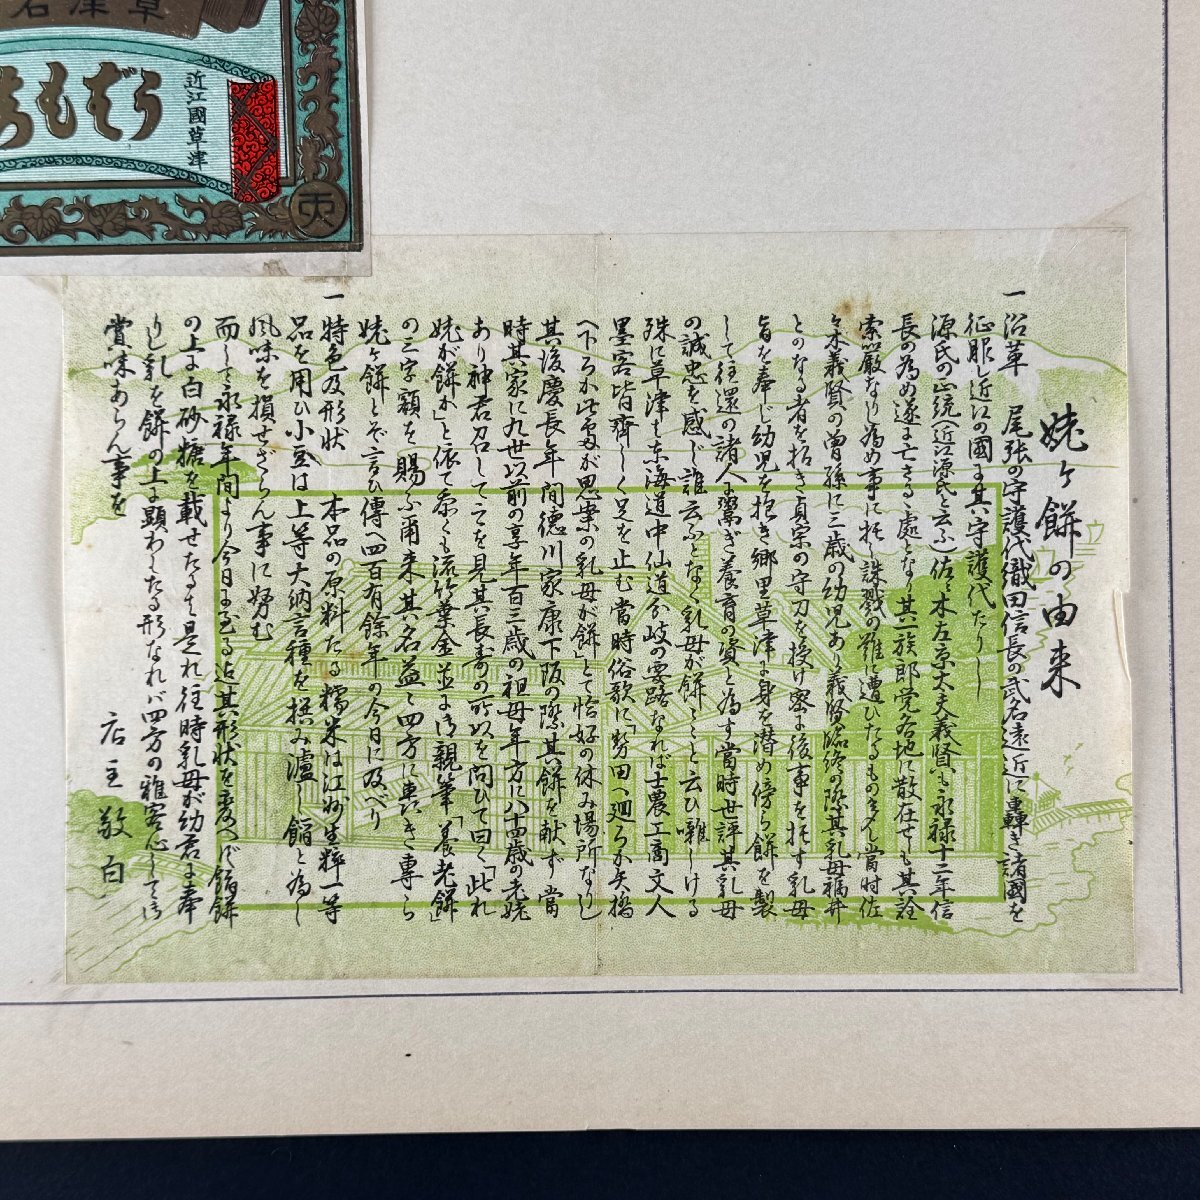 草津名
うばがもち
近江國草津
姥ヶ餅の由来
一 沿革 尾張の守護代織田信長の武名遠近に轟き諸國を
征服し近江の國に其守護代たりし
源氏の正統(近江源氏と云ふ)佐々木左京大夫義賢も永禄十二年信
長の為め遂に亡さるゝ處となり其一族郎党各地に散在せしも其詮
索厳なりし為め事に托し誅戮の難に遭ひたるもの多く當時佐
々木義賢の曽孫に三歳の幼児あり義賢臨終の際其乳母福井
とのなる者を招き貞宗の守刀を授け密に後事を托す乳母
旨を奉じ幼児を抱き郷里草津に身を潜め傍ら餅を製
して往還の諸人に鬻ぎ養育の資と為す當時世評其乳母
の誠忠を感じ誰云ふとなく乳母が餅〱と云ひ囃しける
殊に草津は東海道中仙道分岐の要路なれば士農工商文人
墨客皆齊しく足を止む當時俗歌に「勢田へ廻ろか矢橋
へ下ろか此處が思案の乳母が餅」とて恰好の休み場所なりし
其後慶長年間徳川家康下阪の際其餅を献ず當
時其家に九世以前の享年百三歳の祖母年方に八十四歳の老姥
あり神君召して之を見其長寿の所以を問ひて曰く「此れ
姥が餅か」と依て忝くも流葉金並に御親筆「養老餅」
の三字額を賜ふ爾来其名益々四方に轟き専ら
姥ヶ餅とぞ言ひ傳へ四百有餘年の今日に及べり
一 特色及形状 本品の原料たる糯米は江州生粹一等
品を用ひ小豆は上等大納言種を撰み濾し餡と為し
風味を損せざらん事に努む
而して永禄年間より今日に至る迄其形状を変へず餡餅
の上に白砂糖を載せたるは是れ往時乳母が幼君に奉
りし乳を餅の上に顕わしたる形なれバ四方の雅客心して御
賞味あらん事を
店主敬白